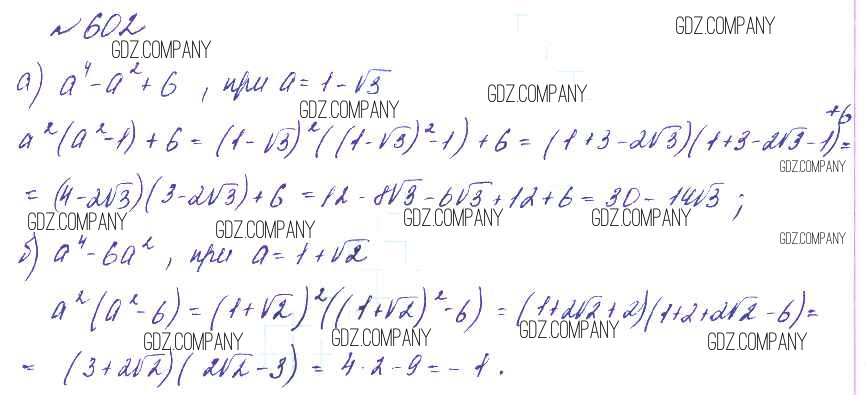 №602
GDZ.COMPANY
GDZ.COMPANY
а) a⁴ - a² + 6 , при a = 1 - √3
GDZ.COMPANY
GDZ.COMPANY
a²(a² - 1) + 6 = (1 - √3)²((1 - √3)² - 1) + 6 = (1 + 3 - 2√3)(1 + 3 - 2√3 - 1) + 6 =
GDZ.COMPANY
= (4 - 2√3)(3 - 2√3) + 6 = 12 - 8√3 - 6√3 + 12 + 6 = 30 - 14√3 ;
GDZ.COMPANY
GDZ.COMPANY
GDZ.COMPANY
GDZ.COMPANY
GDZ.COMPANY
б) a⁴ - 6a² , при a = 1 + √2
a²(a² - 6) = (1 + √2)²((1 + √2)² - 6) = (1 + 2√2 + 2)(1 + 2 + 2√2 - 6) =
GDZ.COMPANY
GDZ.COMPANY
GDZ.COMPANY
GDZ.COMPANY
= (3 + 2√2)(2√2 - 3) = 4 · 2 - 9 = - 1 .